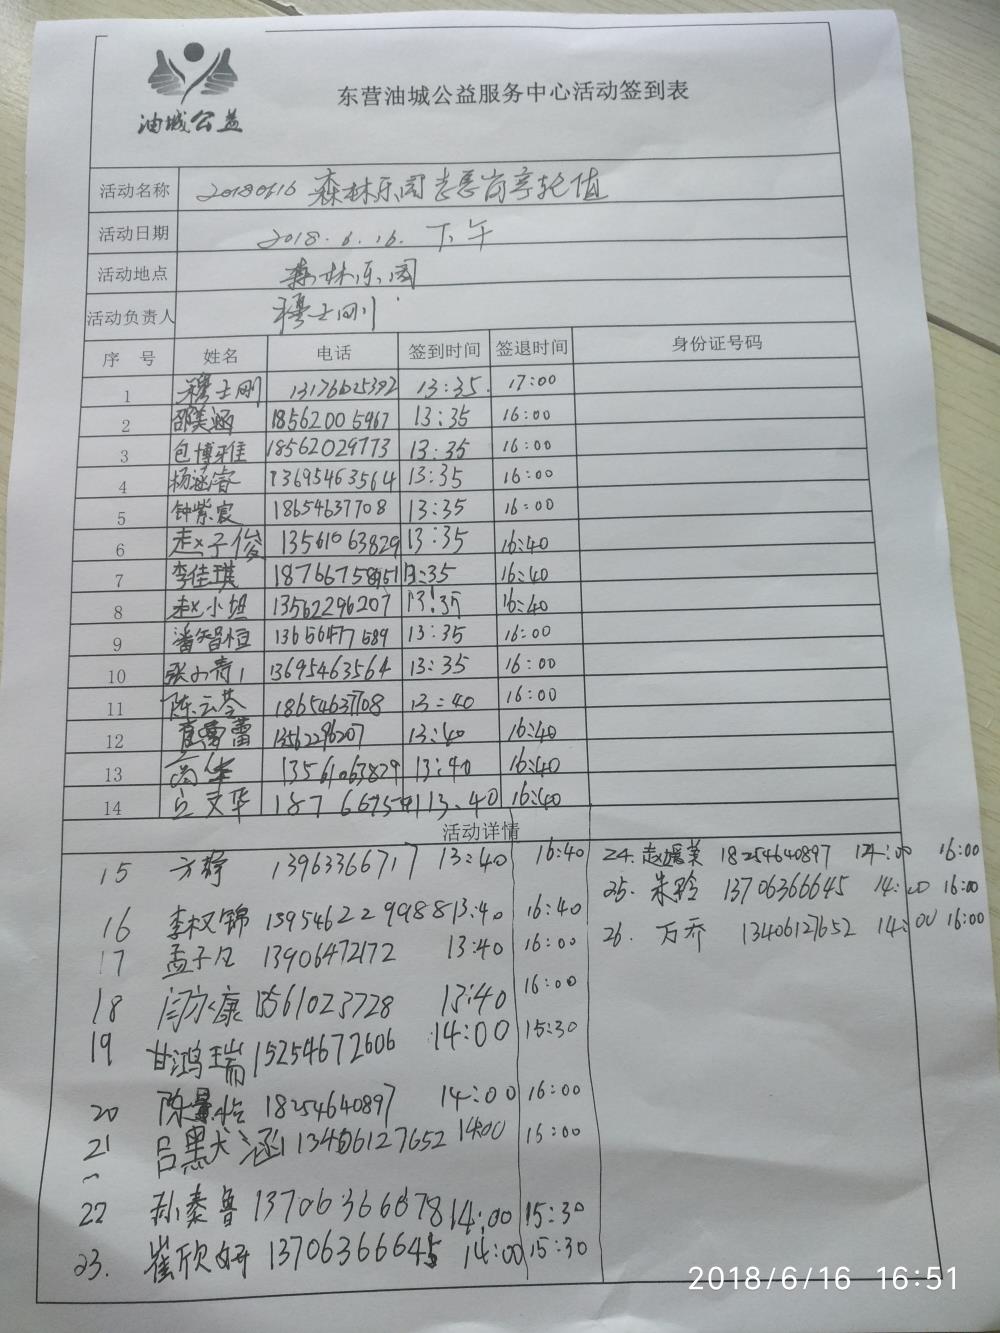 油城公益
东营油城公益服务中心活动签到表
活动名称 20180616 森林乐园志愿岗亭轮值
活动日期 2018.6.16. 下午
活动地点 森林乐园
活动负责人 穆士刚
序 号 姓名 电话 签到时间 签退时间 身份证号码
1 穆士刚 13176625392 13:35. 17:00
2 邵美涵 18562005967 13:35 16:00
3 包博雅 18562029773 13:35 16:00
4 杨涵睿 13695463564 13:35 16:00
5 钟紫宸 18654637708 13:35 16:00
6 赵子俊 13561063829 13:35 16:40
7 李佳琪 13:35 16:40
8 赵小坦 13562296207 13:35 16:40
9 潘智恒 13656477589 13:35 16:00
10 张小青 13695463564 13:35 16:00
11 陈云苓 18654637708 13:40 16:00
12 蕾 13562296207 13:40 16:40
13 13561063829 13:40 16:40
14 文华 13.40 16:40
活动详情
15 方静 13963366717 13:40 16:40
16 李权锦 139546229988 13:40 16:40
17 孟子凡 13906472172 13:40 16:00
18 闫永康 15561023728 13:40 16:00
19 甘鸿瑞 15254672606 14:00 15:30
20 陈 怡 18254640897 14:00 16:00
21 吕 涵 13406127652 14:00 16:00
22 孙泰鲁 13706366678 14:00 15:30
23. 崔欣妍 13706366645 14:00 15:30
24. 赵媛美 18254640897 14:00 16:00
25. 朱玲 13706366645 14:00 16:00
26. 万乔 13406127652 14:00 16:00
2018/6/16 16:51